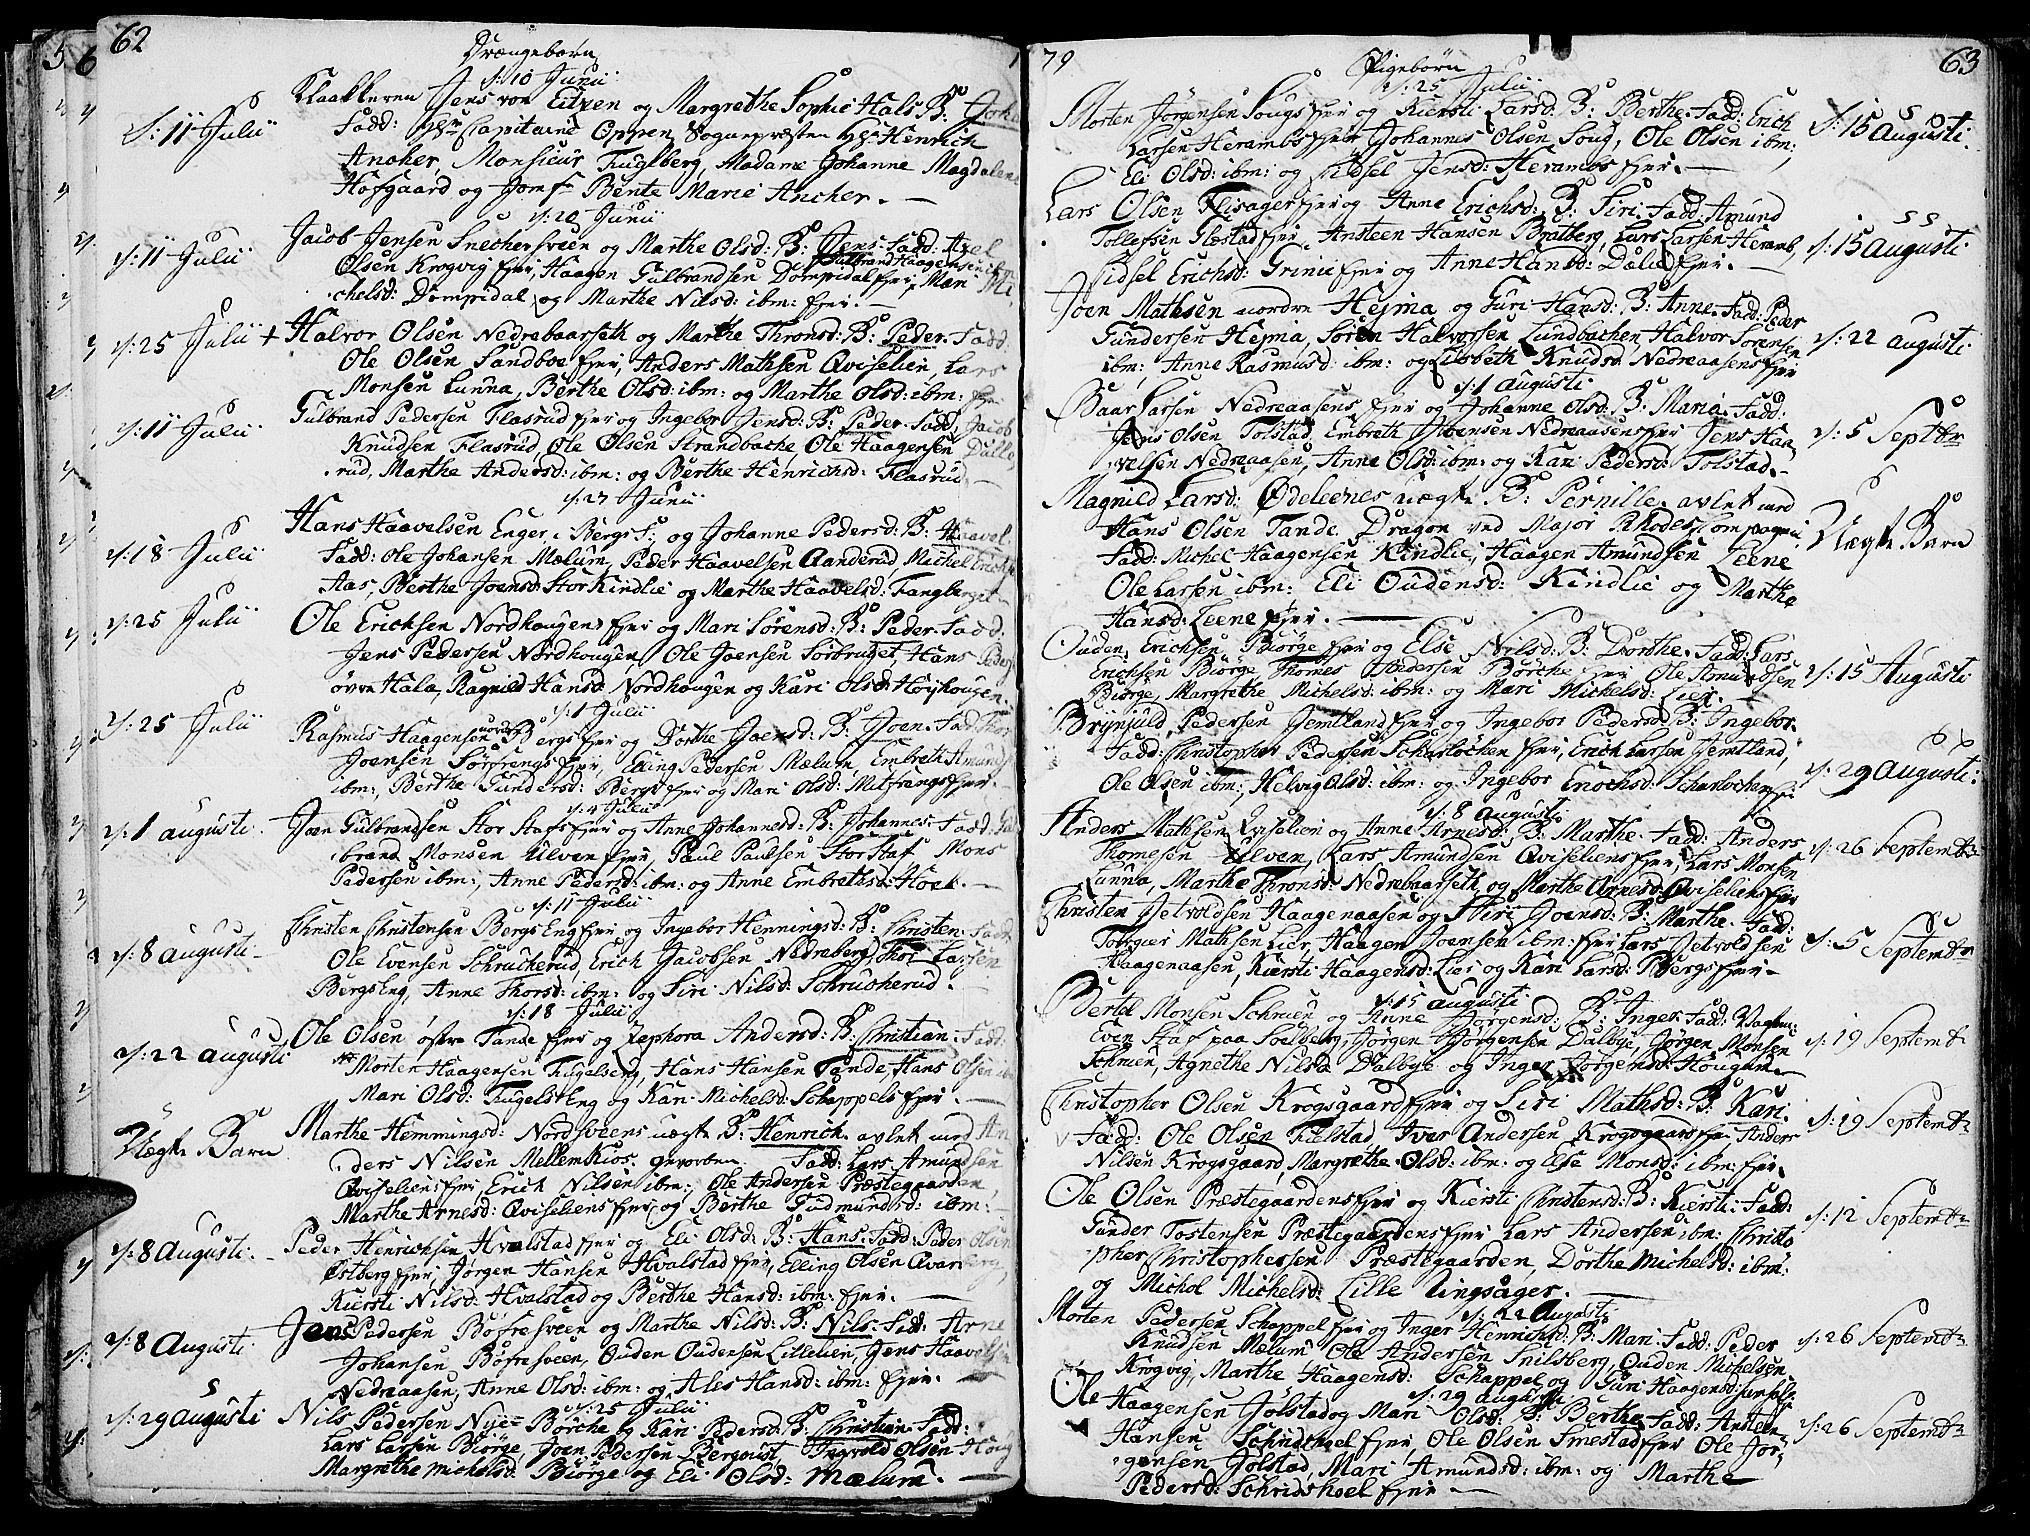 62
Drængebørn
d: 10 Junii
d: 11 Julii
Klokkeren Jens von Eitzen og Margrethe Sophie Hals B:
Fadd: Hr Capitaine Oppen, Sognepræsten Hr Henrich
Ancher, Monsieur Fuglberg, Madame Johanne Magdalene
Hofgaard og Jomfr Bente Marie Ancher. —
d: 20 Junii
d: 11 Julii
Jacob Jensen Snechersveen og Marthe Olsd: B: Jens. Fadd: Axel
Olsen Krogvig fier, Haagen Gulbrandsen Dompidal fier, Mari Mi
Gulbrand Haagensen ibm
chelsd: Dompidal og Marthe Nilsd: ibm: fier. —
d: 25 Julii +
Halvor Olsen Nedrebaarseth og Marthe Thronsd: B: Peder. Fadd:
Ole Olsen Sandboe fier, Anders Mathsen Qviselien, Lars
Monsen Lunna, Berthe Olsd: ibm: og Marthe Olsd: ibm: fier
d: 11 Julii
Gulbrand Pedersen Flasrud fier og Ingebor Jensd: B: Peder. Fadd: Jacob
Knudsen Flasrud, Ole Olsen Strandbache Ole Haagensen Dulle
rud, Marthe Andersd: ibm: og Berthe Henrichsd: Flasrud —
d: 27 Junii
d: 18 Julii
Hans Haavelsen Enger i Bergs S: og Johanne Pedersd: B: Haavel.
Fadd: Ole Johansen Mælum, Peder Haavelsen Aanderud Michel Erichs
Aas, Berthe Joensd: Stor Kindlie og Marthe Haavelsd: Fangberget
d: 25 Julii
Ole Erichsen Nordhougen fier og Mari Sørensd: B: Peder. Fadd:
Jens Pedersen Nordhougen, Ole Joensen Sørbruget, Hans Peders
øvre Hala, Ragnild Hansd: Nordhougen og Kari Olsd: Høyhougen.
d: 1 Julii
d: 25 Julii
Rasmus Haagensen nordre Bergs fier og Dorthe Joensd: B: Joen. Fadd: Thor
Joensen Sørfrengs fier, Elling Pedersen Mælum, Embreth Amunds
ibm:, Berthe Gundersd: Bergs fier og Mari Olsd: Mitfrengs fier.
d: 4 Julii
d: 1 augusti.
Joen Gulbrandsen Stor Stafs fier og Anne Johannesd: B: Johannes. Fadd: Gul
brand Monsen Ulven fier, Paul Paulsen Stor Staf Mons
Pedersen ibm:, Anne Pedersd: ibm: og Anne Embrethsd: Hoel. —
d: 11 Julii
d: 8 augusti.
Christen Christensen Bergs Eng fier og Ingebor Henningsd: B: Christen. Fadd:
Ole Evensen Schrucherud, Erich Jacobsen Nedreberg, Thor Larsen
Bergs Eng, Anne Thorsd: ibm: og Siri Nilsd: Schrucherud. —
d: 18 Julii
d: 22 augusti
Ole Olsen østre Tande fier og Zephora Andersd: B: Christian. Fadd:
Morten Haagensen Fugelseng, Hans Hansen Tande, Hans Olsen ibm
Mari Olsd: Fugelseng og Kari Michelsd: Schappels fier. —
Uægte Barn
Marthe Hemmingsd: Nordsveens uægte B: Henrich. avlet med An
ders Nilsen Mellem Kios. gevorben. Fadd: Lars Amundsen
Qviseliens fier, Erich Nilsen ibm:, Ole Andersen Præstegaarden,
Marthe Arnesd: Qviseliens fier, og Berthe Gudmundsd: ibm: —
d: 8 Augusti.
Peder Henrichsen Hvalstad fier og Eli Olsd: B: Hans. Fadd: Peder Olsen
Østberg fier, Jørgen Hansen Hvalstad fier, Elling Olsen Qvarberg,
Kiersti Nilsd: Hvalstad og Berthe Hansd: ibm: fier. —
d: 8 Augusti.
Jens Pedersen Bøfresveen og Marthe Nilsd: B: Nils. Fadd: Arne
Johansen Bøfresveen, Ouden Oudensen Lillevien, Jens Haavelsen
Nedreaasen, Anne Olsd: ibm: og Ales Hansd: ibm: fier. —
d: 25 Julii
d: 29 augusti
Nils Pedersen Nye Børche og Kari Pedersd: B: Christian. Fadd:
Lars Larsen Biørge, Joen Pedersen Bergqvist, Ingvold Olsen Houg
Margrethe Michelsd: Biørge og Eli Olsd: Mælum. —
79
63
Pigebørn
d: 25 Julii
Morten Jørgensen Sougs fier og Kiersti Larsd: B: Berthe. Fadd: Erich
Larsen Herambs fier Johannes Olsen Soug, Ole Olsen ibm:,
Eli Olsd: ibm: og Sidsel Jensd: Herambs fier. —
d: 15 augusti.
Lars Olsen Flisager fier og Anne Erichsd: B: Siri. Fadd: Amund
Tollefsen Glestad fier, Ansteen Hansen Bratberg, Lars Larsen Heramb,
Sidsel Erichsd: Grinie fier og Anne Hansd: Dælie fier. —
d: 15 augusti
Joen Mathsen nordre Hejma og Guri Hansd: B: Anne. Fadd: Peder
Gundersen Hejma, Søren Halvorsen Lundbachen Halvor Sørensen
ibm:, Anne Rasmusd: ibm: og Lisbeth Knudsd: Nedreaasens fier
d: 22 augusti
d: 1 augusti
Baar Larsen Nedreaasens fier og Johanne Olsd: B: Maria. Fadd:
Jens Olsen Tolstad, Embreth Joensen Nedreaasens fier Jens Haa
velsen Nedreaasen, Anne Olsd: ibm: og Kari Pedersd: Tolstad. —
d: 5 Septbr
Magnild Larsd: Ødeleenes uægte B: Pernille. avlet med
Hans Olsen Tande. Dragon ved Major Rhodes Compagni.
Fadd: Michel Haagensen Kindlie, Haagen Amundsen Leene
Ole Larsen ibm: Eli Oudensd: Kindlie og Marthe
Hansd: Leene fier. —
Uægte Barn
Ouden Erichsen Biørge fier og Else Nilsd: B: Dorthe. Fadd: Lars
Erichsen Biørge Thomes Pedersen Børche fier Ole Amundsen
Biørge, Margrethe Michelsd: ibm: og Mari Michelsd: Lier.
d: 15 Augusti
Brynjuld Pedersen Jemtland fier og Ingebor Pedersd: B: Ingebor.
Fadd: Christopher Pedersen Scharlochen fier, Erich Larsen Jemtland,
Ole Olsen ibm:, Helvig Olsd: ibm: og Ingebor Erichsd: Scharlochen fier
d: 29 augusti.
d: 8 augusti
Anders Mathsen Qviselien og Anne Arnesd: B: Marthe. Fadd: Anders
Thomesen Ulven, Lars Amundsen Qviseliens fier, Lars Monsen
Lunna, Marthe Thronsd: Nedrebaarseth og Marthe Arnesd: Qviseliens fier
d: 26 Septembr
Christen Jetvoldsen Haagenaasen og Siri Joensd: B: Marthe. Fadd:
Torgier Mathsen Lier, Haagen Joensen ibm: fier Lars Jetvoldsen
Haagenaasen, Kiersti Haagensd: Lier og Kari Larsd: Bergs fier. —
d: 5 Septembr
d: 15 augusti
Bertel Monsen Schmien og Anne Jørgensd: B: Inger. Fadd: Vagtm:
Even Staf paa Soelberg, Jørgen Jørgensen Dalbye, Jørgen Monsen
Schmien, Agnethe Nilsd: Dalbye og Inger Jørgensd: Hougum
d: 19 Septembr
Christopher Olsen Krogsgaard fier og Siri Mathsd: B: Kari.
Fadd: Ole Olsen Fielstad, Iver Andersen Krogsgaards fier, Anders
Nilsen Krogsgaard, Margrethe Olsd: ibm: og Else Monsd: ibm: fier.
d: 19 Septembr
Ole Olsen Præstegaardens fier og Kiersti Christensd: B: Kiersti. Fadd:
Gunder Tostensen Præstegaardens fier Lars Andersen ibm: Christo
pher Christophersen Præstegaarden, Dorthe Michelsd: ibm:
og Michol Michelsd: Lille Ringsager. —
d: 12 Septembr
d: 22 Augusti
Morten Pedersen Schappel fier og Inger Henrichsd: B: Mari. Fadd: Peder
Knudsen Mælum Ole Andersen Snilsberg, Ouden Michelsen
Krogvig, Marthe Haagensd: Schappel og Guri Haagensd:
d: 26 Septembr
d: 29 augusti
Ole Haagensen Jølstad og Mari Olsd: B: Berthe. Fadd: Anders
Hansen Schridshoel fier, Ole Olsen Smestad fier Ole Jør
gensen Jølstad, Mari Amundsd: ibm: og Marthe
Pedersd: Schridshoel fier —
d: 26 Septembr